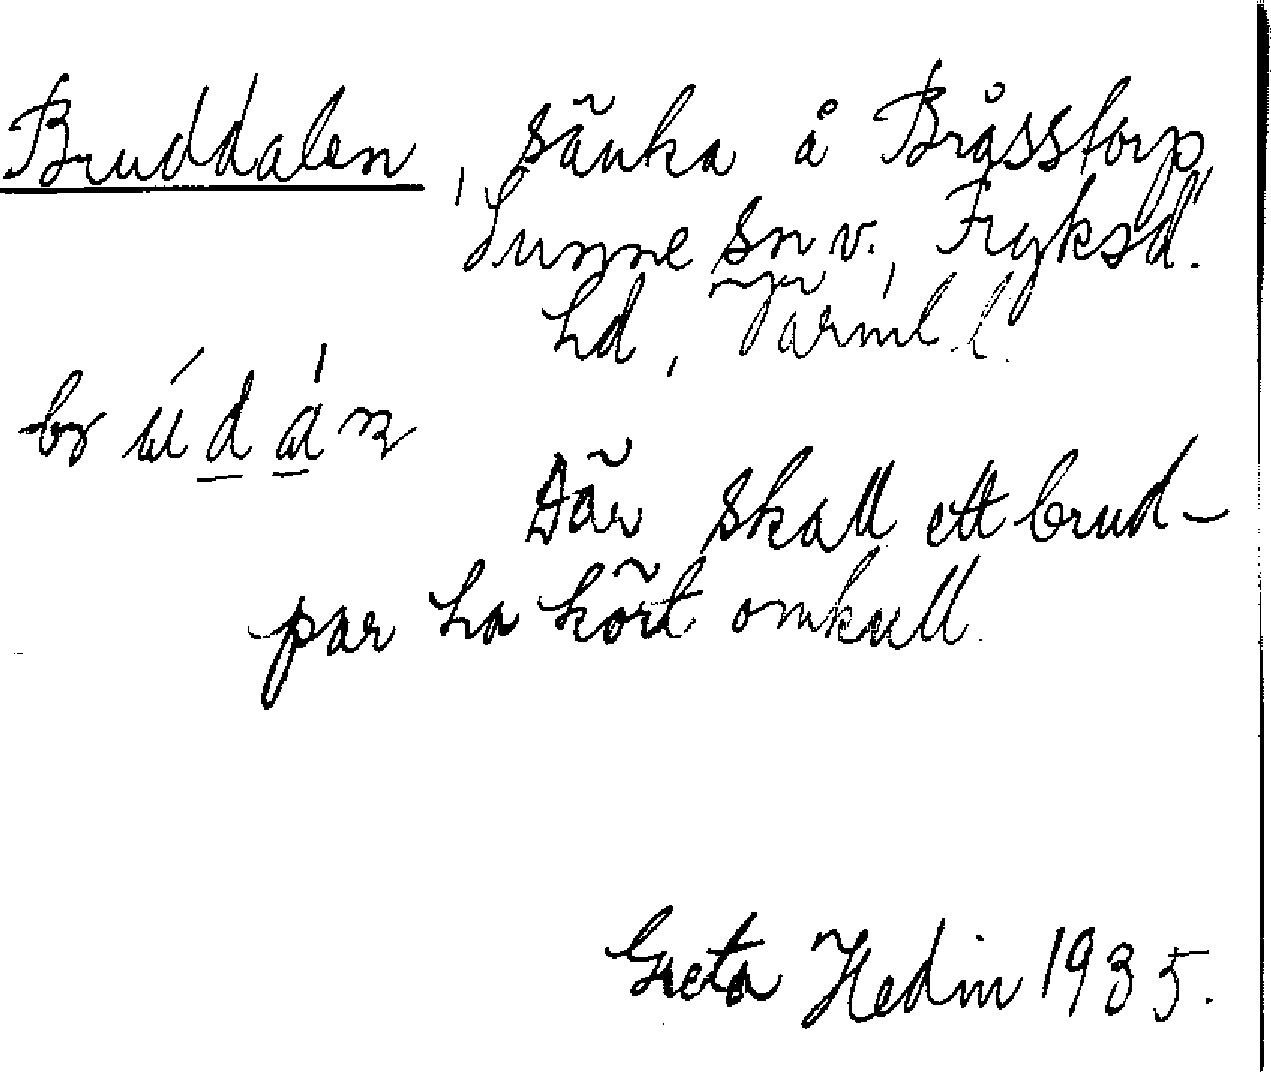 Bruddalen, sänka å Bråsstorp,
Sunne sn v., Fryksd.
hd, Värml. l.
Där skall ett brud-
par ha kört omkull.
Greta Hedin 1935.